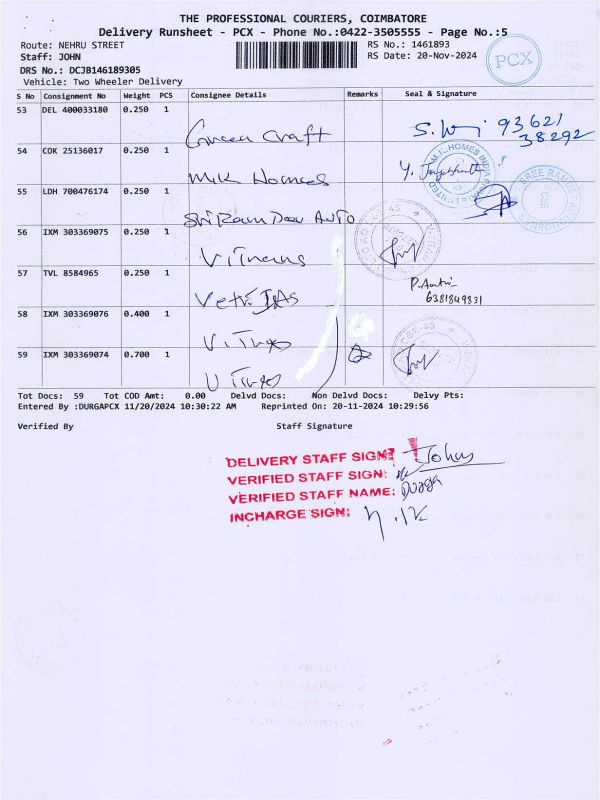 THE PROFESSIONAL COURIERS, COIMBATORE
Delivery Runsheet - PCX - Phone No.:0422-3505555 - Page No.:5
Route: NEHRU STREET RS No.: 1461893
Staff: JOHN RS Date: 20-Nov-2024
PCX
DRS No.: DCJB146189305
Vehicle: Two Wheeler Delivery
S No Consignment No Weight PCS Consignee Details Remarks Seal & Signature
53 DEL 400033180 0.250 1
Green Craft 93621
38292
54 COK 25136017 0.250 1
MK Homes
55 LDH 700476174 0.250 1
Sri Ram Dev AUTO
56 IXM 303369075 0.250 1
57 TVL 8584965 0.250 1
6381849831
58 IXM 303369076 0.400 1
59 IXM 303369074 0.700 1
Tot Docs: 59 Tot COD Amt: 0.00 Delvd Docs: Non Delvd Docs: Delvy Pts:
Entered By :DURGAPCX 11/20/2024 10:30:22 AM Reprinted On: 20-11-2024 10:29:56
Verified By Staff Signature
DELIVERY STAFF SIGN: John
VERIFIED STAFF SIGN:
VERIFIED STAFF NAME: Durga
INCHARGE SIGN: